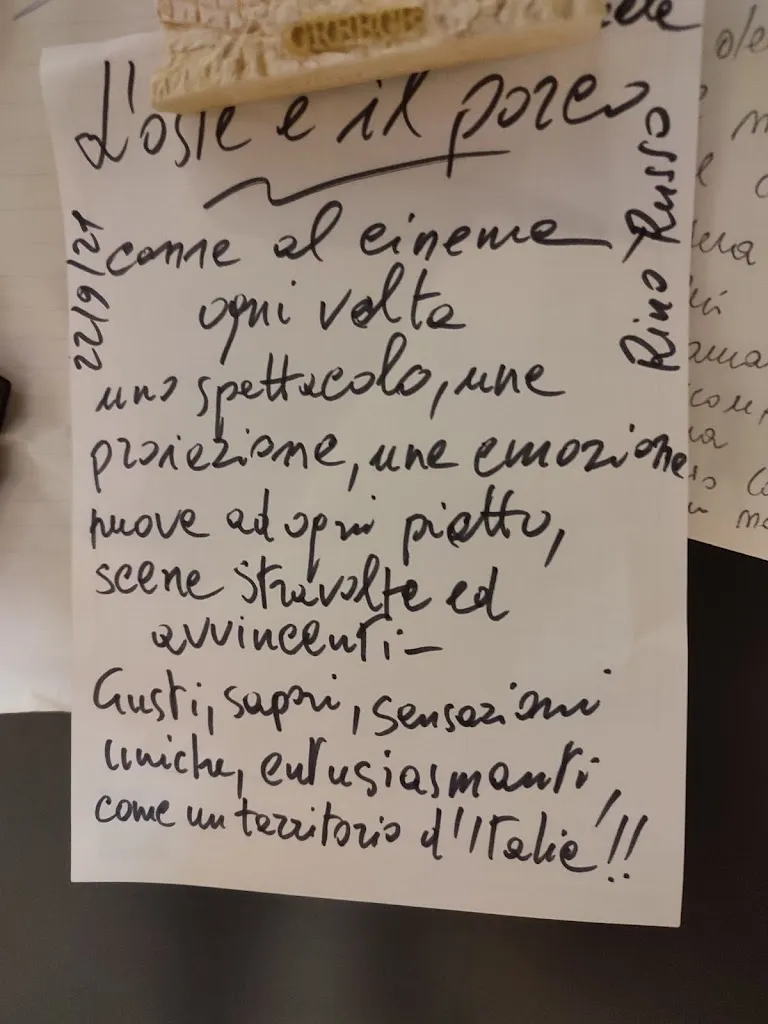 GREECE
L'oste e il porco
22/9/21
Rino Russo
come al cinema
ogni volta
uno spettacolo, una
proiezione, una emozione
nuova ad ogni piatto,
scene stravolte ed
avvincenti-
Gusti, sapori, sensazioni
uniche, entusiasmanti,
come un territorio d'Italia!!!